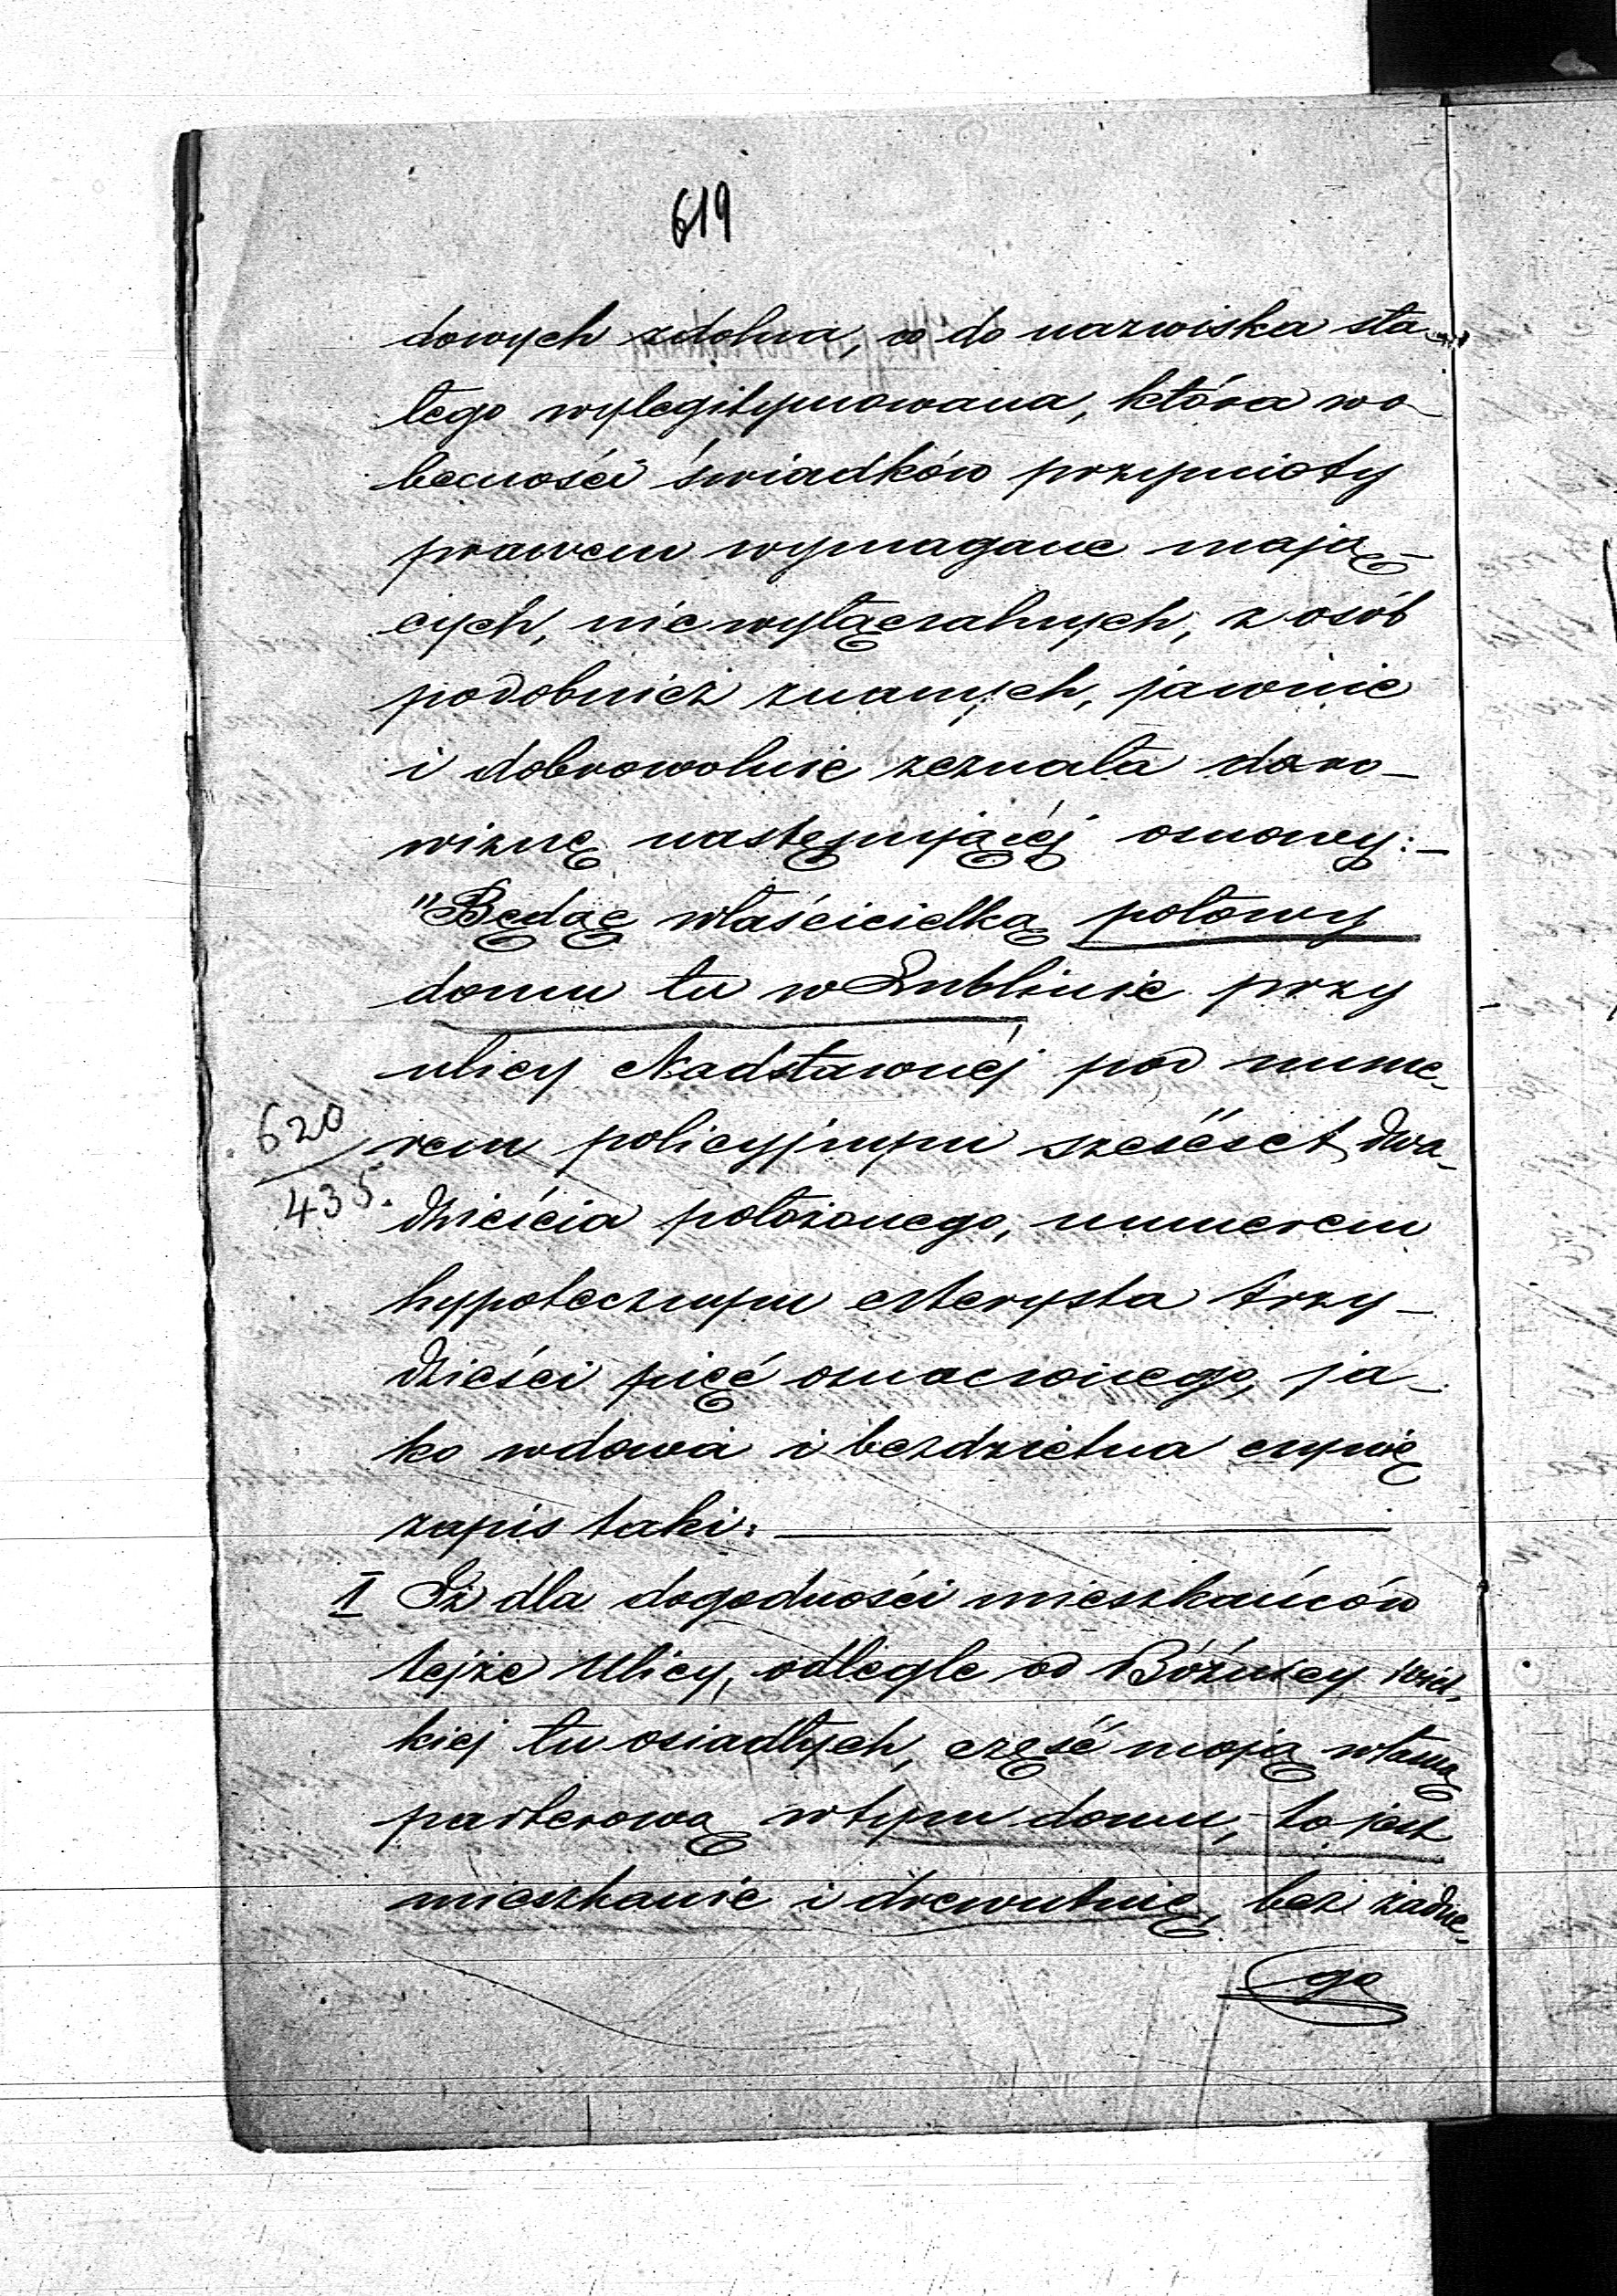 619
dowych zdolna, co do nazwiska sta-
łego wylegitymowana, która wo-
becności świadków przymioty
prawem wymagane mają-
cych, niewyłączalnych, z osób
podobnież znanych, jawnie
i dobrowolnie zeznała daro-
wiznę następującéj osnowy:-
"Będąc właścicielką połowy
domu tu w Lublinie przy
ulicy Nadstawnéj pod nume-
620 rem policyjnym sześćset dwa-
435. dzieścia położonego, numerem
hypotecznym czterysta trzy-
dzieści pięć oznaczonego, ja-
ko wdowa i bezdzietna czynię
zapis taki:
I Iż dla dogodności mieszkańców
tejże Ulicy, odległe od Bóżnicy wiel-
kiej tu osiadłych, część moją własną
parterową w tym domu, to jest
mieszkanie i drewutnię, bez żadne-
go